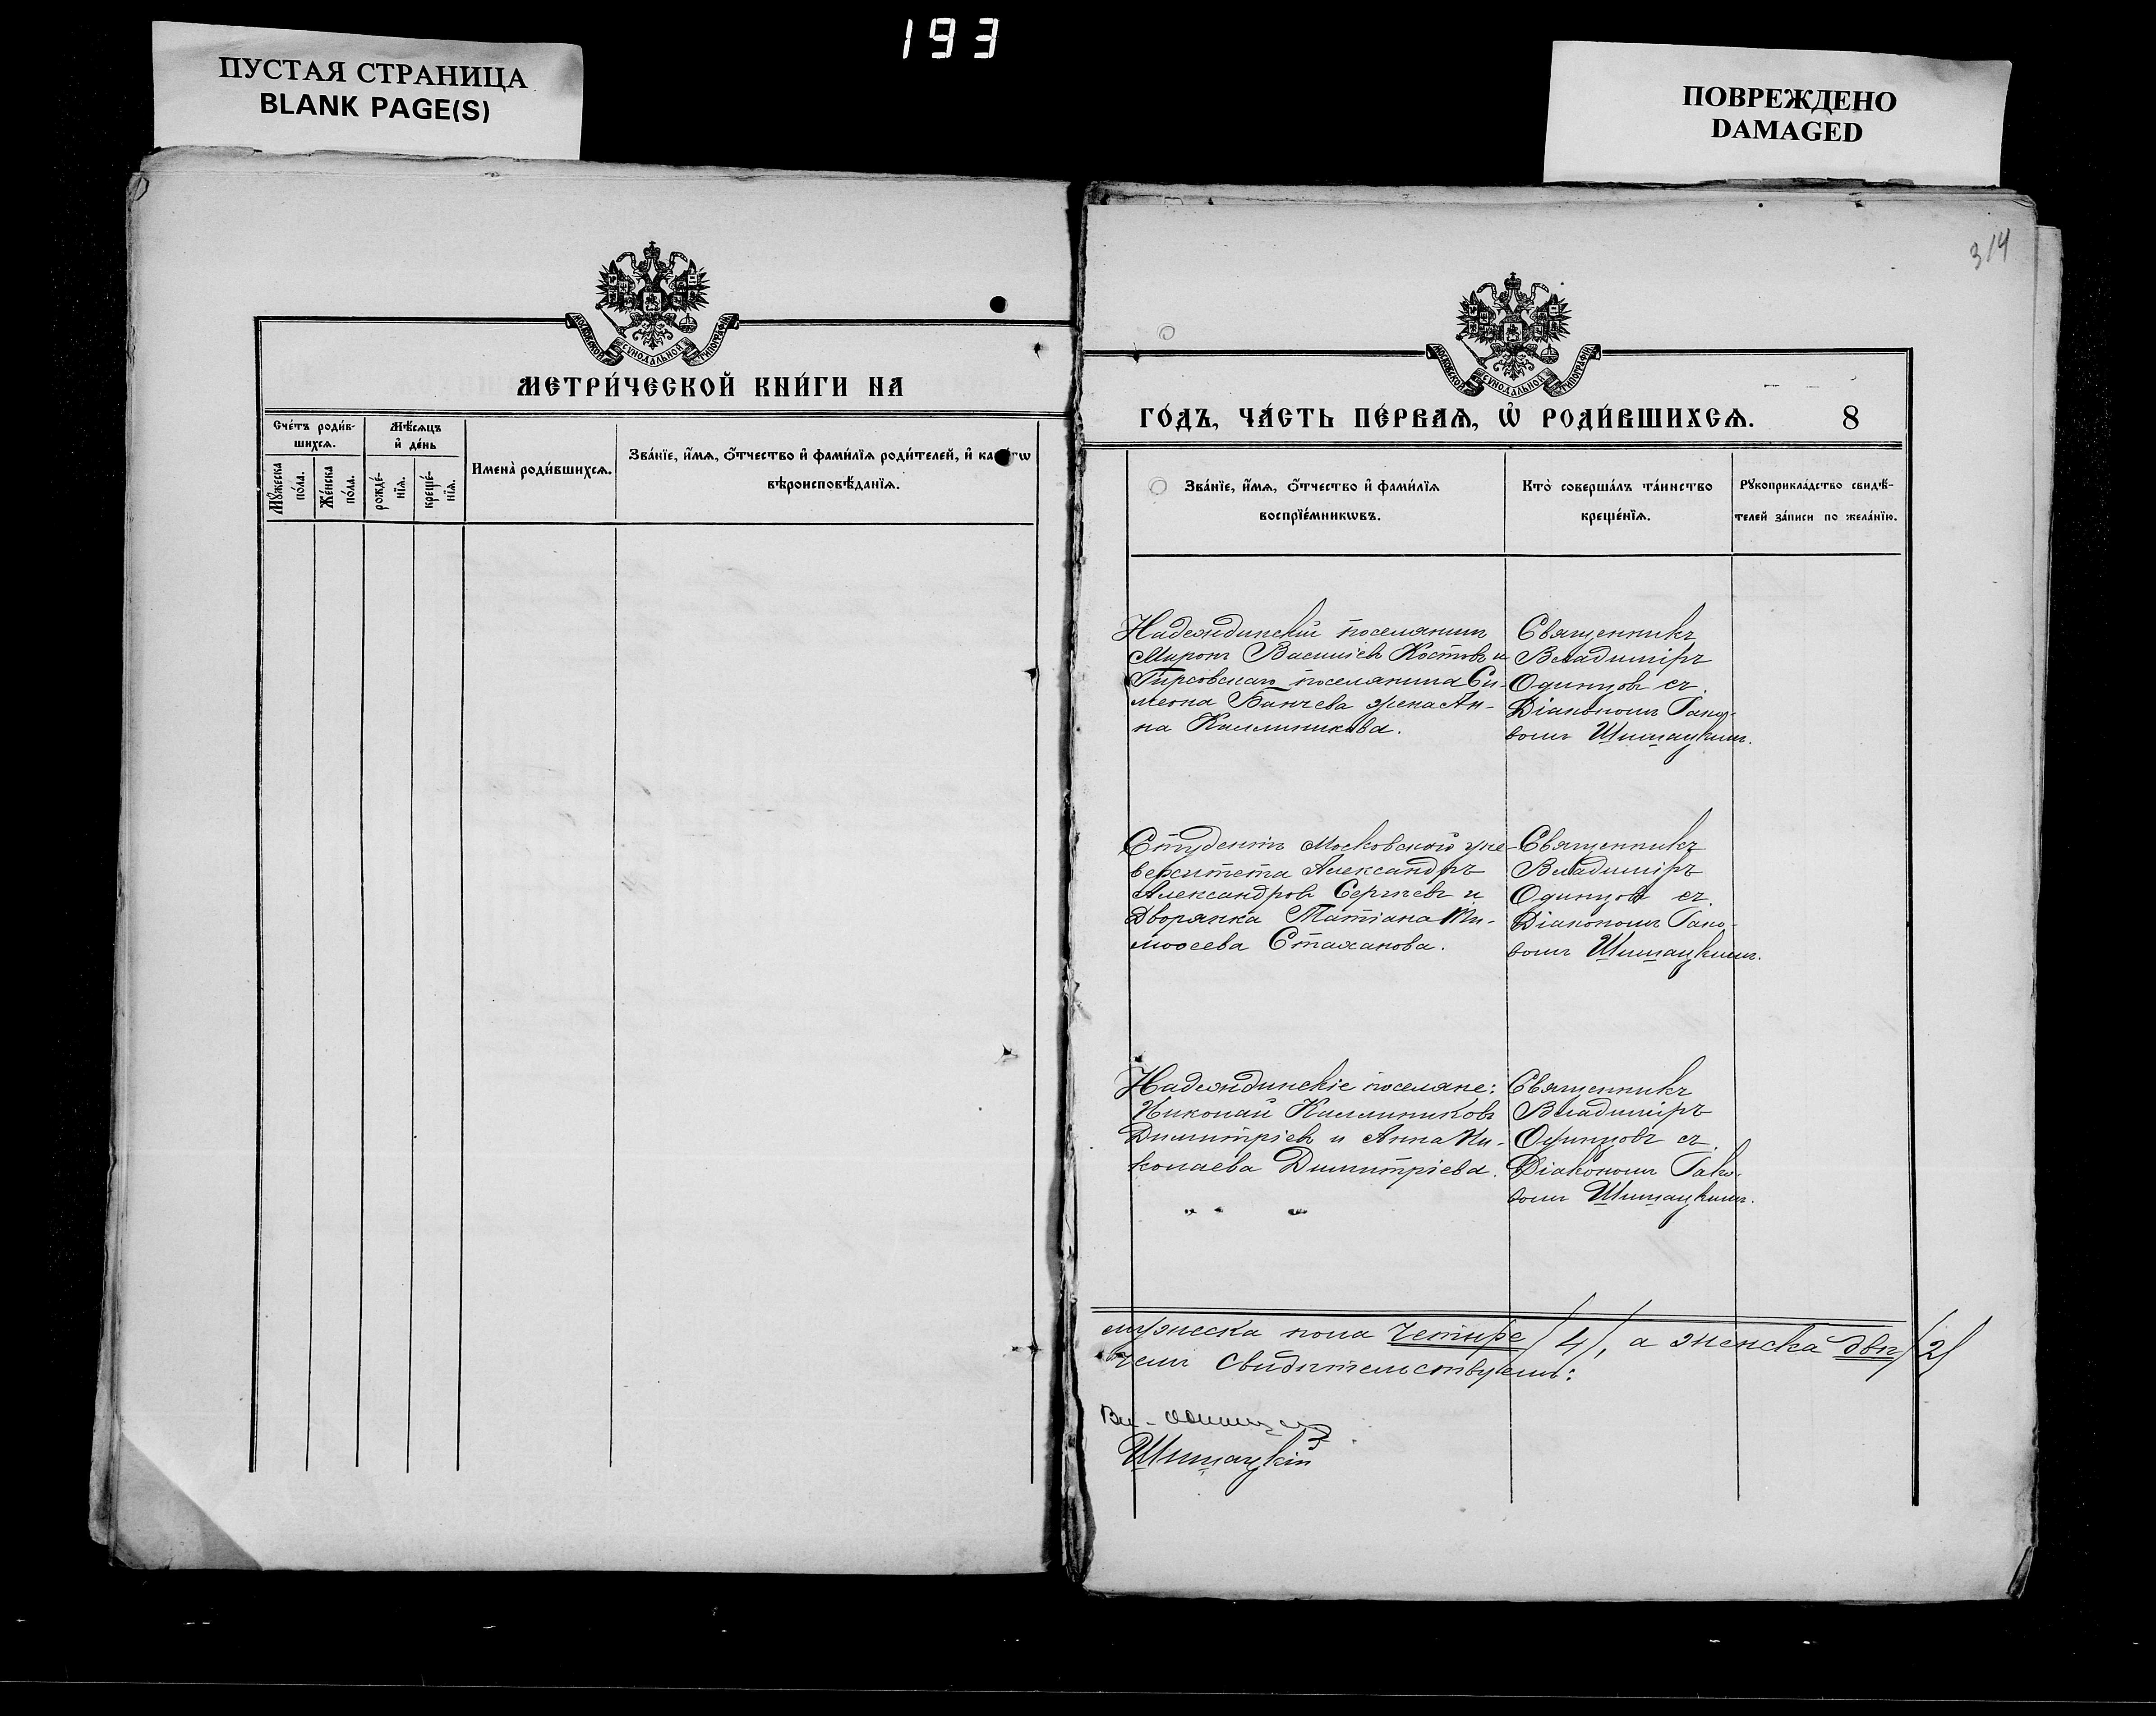 193
ПУСТАЯ СТРАНИЦА
BLANK PAGE(S)
ПОВРЕЖДЕНО
DAMAGED
МОСКОВСКОЙ СѴНОДАЛЬНОЙ ТИПОГРАФІИ
МЕТРИ́ЧЕСКОЙ КНИ́ГИ НА
Сче́тъ роди́в-
шихсѧ.
Мѣ́сѧцъ
и҆ де́нь
Мꙋ́жеска
по́ла.
Же́нска
по́ла.
рожде́-
нїѧ.
креще́-
нїѧ.
Имена̀ роди́вшихсѧ.
Зва́нїе, и҆́мѧ, ѻ҆́тчество и҆ фами́лїѧ роди́телей, и҆ ка
гѡ
вѣроисповѣ́данїѧ.
314
МОСКОВСКОЙ СѴНОДАЛЬНОЙ ТИПОГРАФІИ
ГО́ДЪ, ЧА́СТЬ ПЕ́РВАѦ, Ѡ҆ РОДИ́ВШИХСѦ.
8
Зва́нїе, и҆́мѧ, ѻ҆́тчество и҆ фами́лїѧ
воспрїе́мникѡвъ.
Кто̀ соверша́лъ та́инство
креще́нїѧ.
Рꙋкоприкла́дство свидѣ́-
телей за́писи по жела́нїю.
Надеждинскій поселянинъ
Миронъ Василіевъ Костовъ и
Гирсовскаго поселянина Си-
меона Банчева жена Ан-
на Каллиникова.
Священникъ
Владиміръ
Одинцовъ съ
Діакономъ Іако-
вомъ Шишацкимъ.
Студентъ Московскаго уни-
верситета Александръ
Александровъ Сергѣевъ и
Дворянка Татіана Ти-
моѳеева Стаханова.
Священникъ
Владиміръ
Одинцовъ съ
Діакономъ Іако-
вомъ Шишацкимъ.
Надеждинскіе поселяне:
Николай Каллиниковъ
Димитріевъ и Анна Ни-
колаева Димитріева.
Священникъ
Владиміръ
Одинцовъ съ
Діакономъ Іако-
вомъ Шишацкимъ.
мужеска пола четыре /4/, а женска двѣ /2/
чемъ свидѣтельствуемъ:
Вл. Одинцовъ
Шишацкій